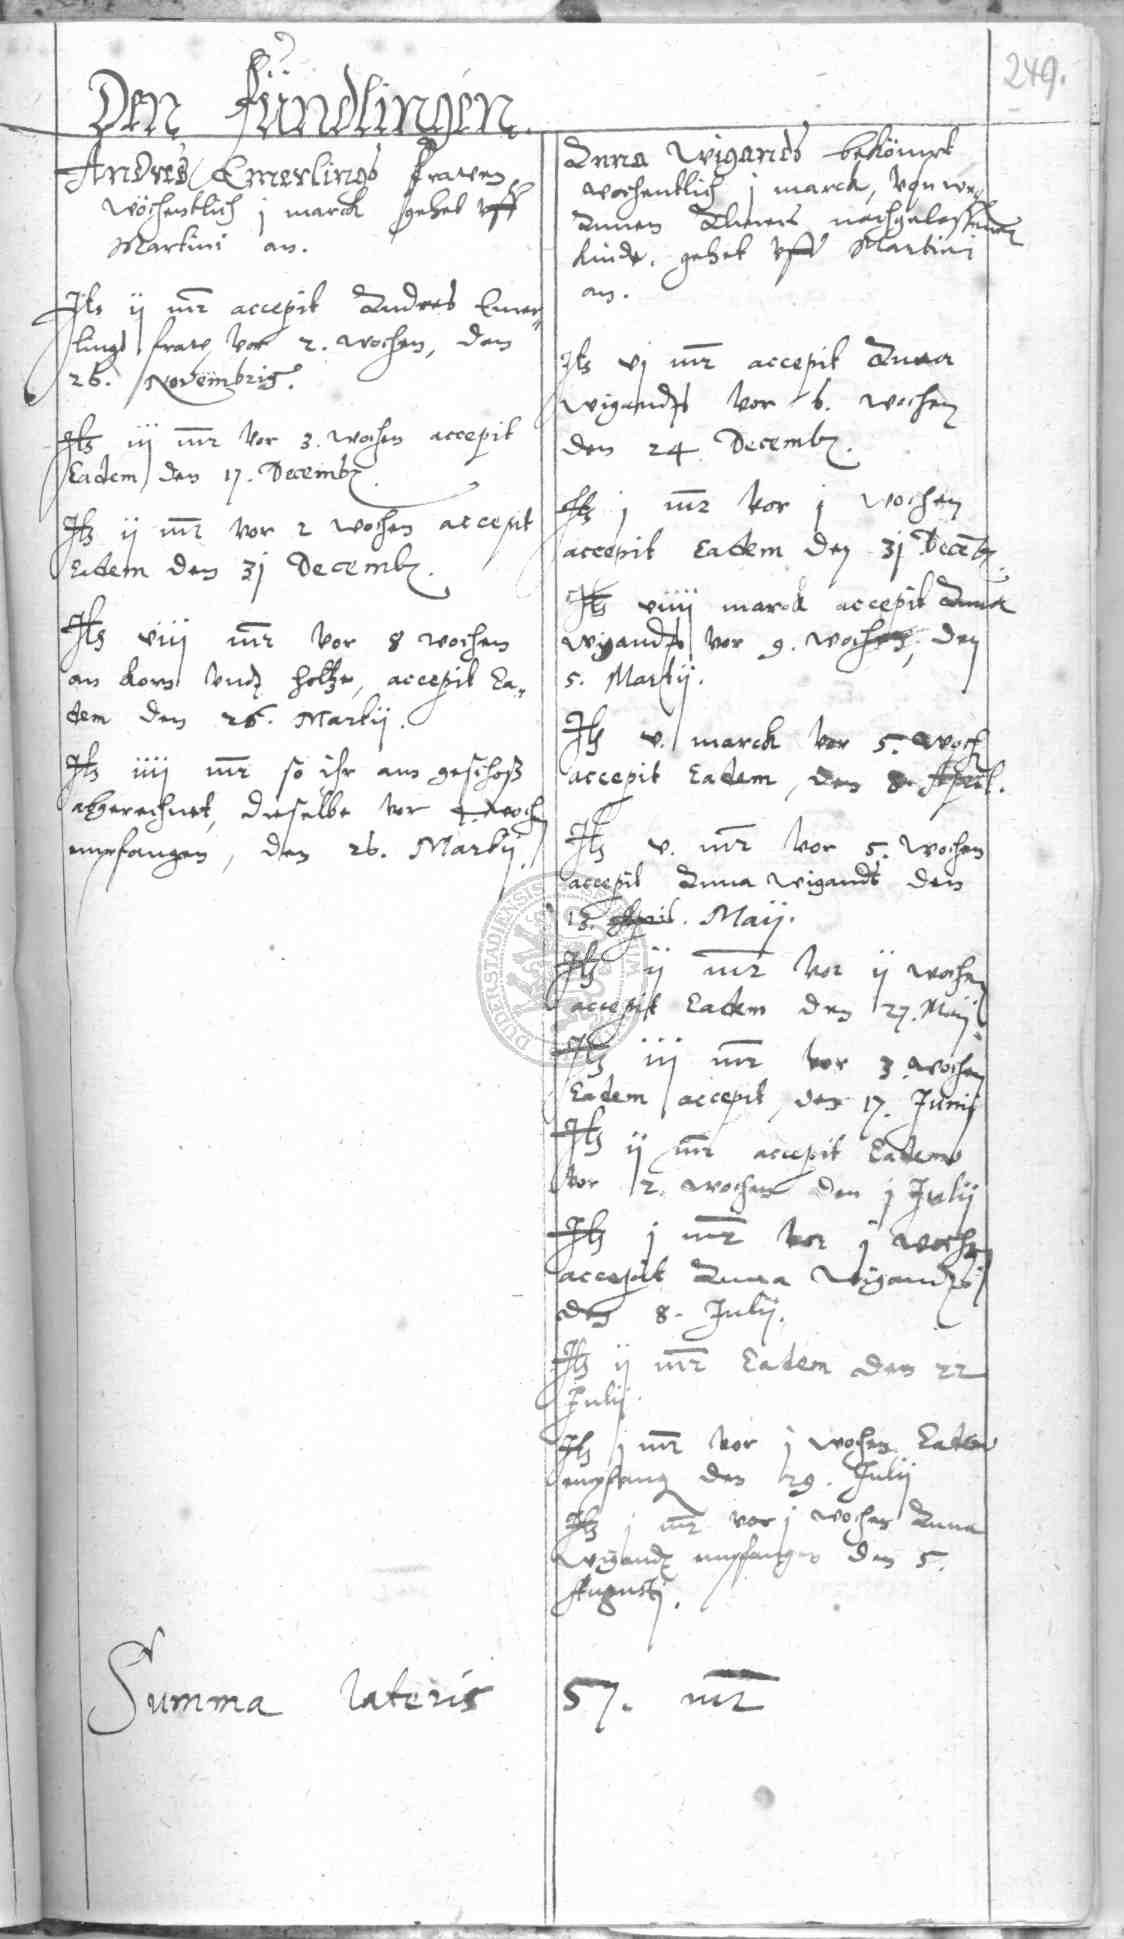 249.
Den Fündlingen.
Andres Emerlings frawen
wöchentlich j marck gehet vff
Martini an.
Itz ij mr accepit Andres Emer-
lings fraw, vor 2. wochen, den
26. Novembris.
Itz iij mr vor 3. wochen accepit
Eadem den 17. Decemb.
Itz ij mr vor 2 wochen accepit
Eadem den 31 Decemb.
Itz viij mr vor 8 wochen
an korn vnd holtze, accepit Ea-
dem den 26. Martij.
Itz iiij mr so ihr am geschoß
abgerechnet, dieselbe vor 4. woch
empfangen, den 26. Martij.
Anna Wigands bekömpt
wochentlich j marck, von we-
Annen nachgelassenen
kinde. gehet vff Martini
an.
Itz vj mr accepit Anna
Wigands vor 6. wochen
den 24. Decemb.
Itz j mr vor j wochen
accepit Eadem den 31 Decemb.
Itz viiij marck accepit Anna
Wigands vor 9. wochen, den
5. Martij.
Itz v. marck vor 5. woch
accepit Eadem, den 8. April.
Itz v. mr vor 5. wochen
accepit Anna Wigands den
13. April. Maij.
Itz ij mr vor ij wochen
accepit Eadem den 27. Maij
Itz iij mr vor 3. wochen
Eadem accepit, den 17. Junij
Itz ij mr accepit Eadem
vor 2. wochen den j Julij
Itz j mr vor j wochen
accepit Anna Wigands
den 8. Julij.
Itz ij mr Eadem den 22
Julij.
Itz j mr vor j wochen Eadem
empfang den 29. Julij
Itz j mr vor j wochen Anna
Wigands empfangen den 5.
Augusti.
Summa lateris 57. mr